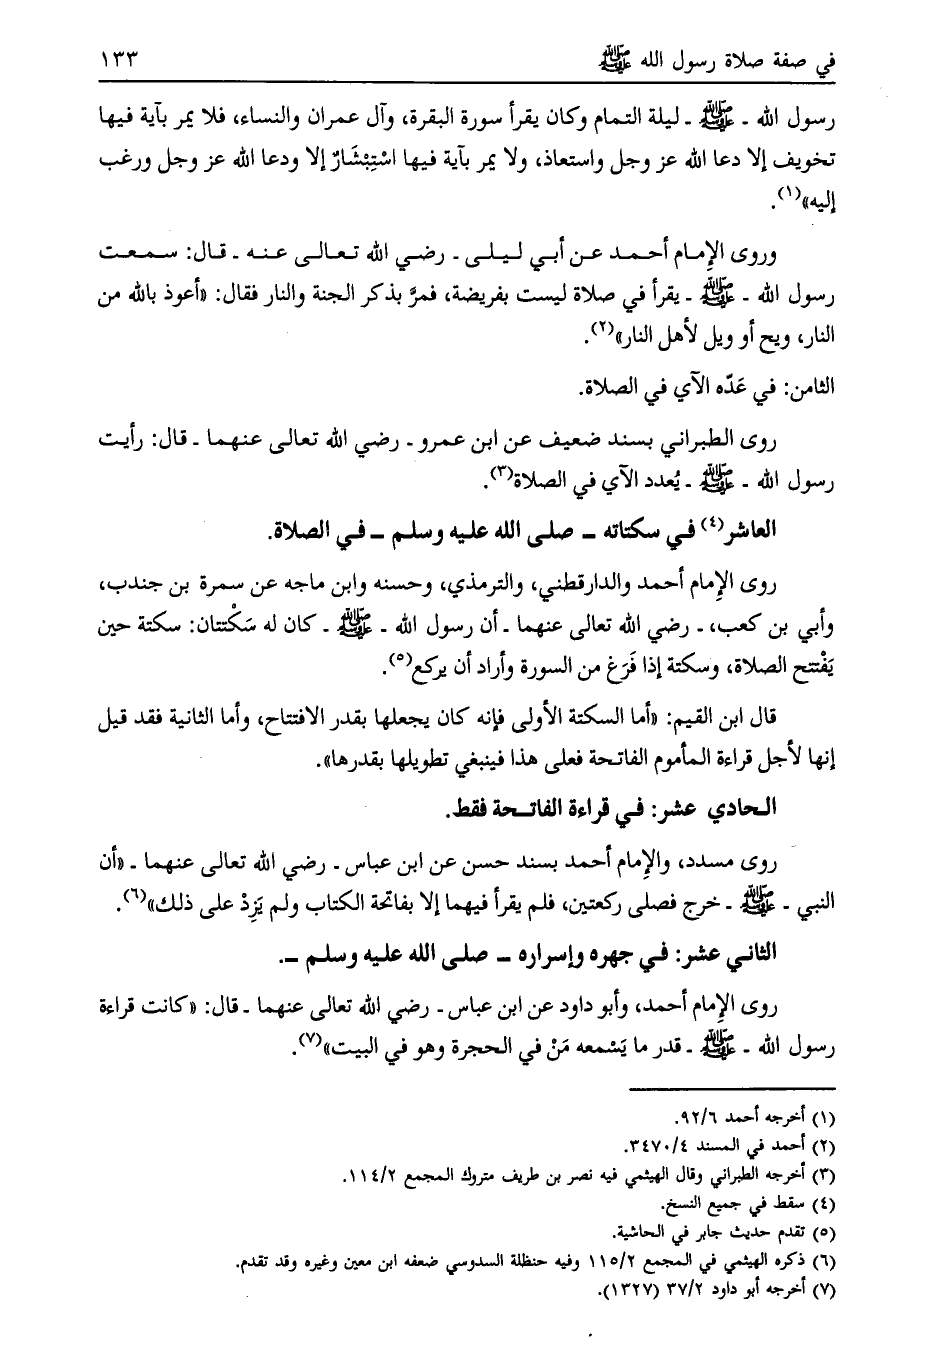 في صفة صلاة رسول الله ﷺ ١٣٣
رسول الله ـ ﷺ ـ ليلة التمام وكان يقرأ سورة البقرة، وآل عمران والنساء، فلا يمر بآية فيها
تخويف إلا دعا الله عز وجل واستعاذ، ولا يمر بآية فيها اسْتِبْشَارٌ إلا ودعا الله عز وجل ورغب
إليه»(١).
وروى الإِمام أحمد عن أبي ليلى ـ رضي الله تعالى عنه ـ قال: سمعت
رسول الله ـ ﷺ ـ يقرأ في صلاة ليست بفريضة، فمرَّ بذكر الجنة والنار فقال: «أعوذ بالله من
النار، ويح أو ويل لأهل النار»(٢).
الثامن: في عَدّه الآي في الصلاة.
روى الطبراني بسند ضعيف عن ابن عمرو ـ رضي الله تعالى عنهما ـ قال: رأيت
رسول الله ـ ﷺ ـ يُعدد الآي في الصلاة(٣).
العاشر(٤) في سكتاته ـ صلى الله عليه وسلم ـ في الصلاة.
روى الإِمام أحمد والدارقطني، والترمذي، وحسنه وابن ماجه عن سمرة بن جندب،
وأبي بن كعب، ـ رضي الله تعالى عنهما ـ أن رسول الله ـ ﷺ ـ كان له سَكْتتان: سكتة حين
يَفْتتح الصلاة، وسكتة إذا فَرَغ من السورة وأراد أن يركع(٥).
قال ابن القيم: «أما السكتة الأولى فإنه كان يجعلها بقدر الافتتاح، وأما الثانية فقد قيل
إنها لأجل قراءة المأموم الفاتحة فعلى هذا فينبغي تطويلها بقدرها».
الحادي عشر: في قراءة الفاتحة فقط.
روى مسدد، والإِمام أحمد بسند حسن عن ابن عباس ـ رضي الله تعالى عنهما ـ «أن
النبي ـ ﷺ ـ خرج فصلى ركعتين، فلم يقرأ فيهما إلا بفاتحة الكتاب ولم يَزِدْ على ذلك»(٦).
الثاني عشر: في جهره وإسراره ـ صلى الله عليه وسلم ـ.
روى الإِمام أحمد، وأبو داود عن ابن عباس ـ رضي الله تعالى عنهما ـ قال: «كانت قراءة
رسول الله ـ ﷺ ـ قدر ما يَسْمعه مَنْ في الحجرة وهو في البيت»(٧).
(١) أخرجه أحمد ٩٢/٦.
(٢) أحمد في المسند ٣٤٧٠/٤.
(٣) أخرجه الطبراني وقال الهيثمي فيه نصر بن طريف متروك المجمع ١١٤/٢.
(٤) سقط في جميع النسخ.
(٥) تقدم حديث جابر في الحاشية.
(٦) ذكره الهيثمي في المجمع ١١٥/٢ وفيه حنظلة السدوسي ضعفه ابن معين وغيره وقد تقدم.
(٧) أخرجه أبو داود ٣٧/٢ (١٣٢٧).